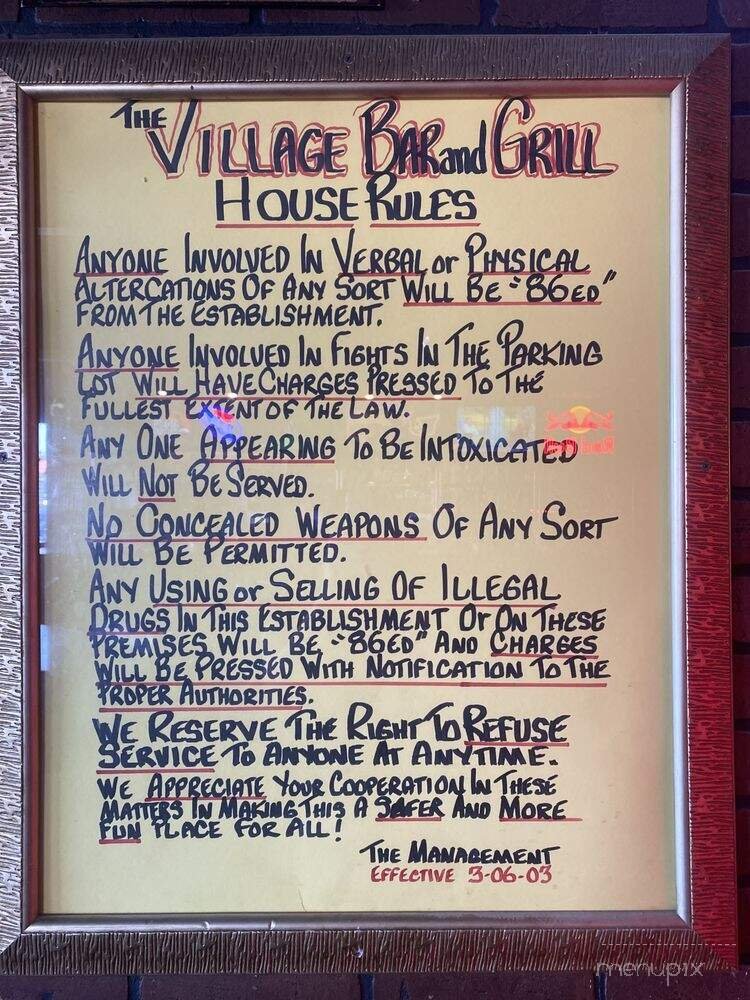 THE VILLAGE BAR and GRILL
HOUSE RULES
ANYONE INVOLVED IN VERBAL or PHYSICAL
ALTERCATIONS OF ANY SORT WILL BE "86ED"
FROM THE ESTABLISHMENT.
ANYONE INVOLVED IN FIGHTS IN THE PARKING
LOT WILL HAVE CHARGES PRESSED TO THE
FULLEST EXTENT OF THE LAW.
ANY ONE APPEARING TO BE INTOXICATED
WILL NOT BE SERVED.
NO CONCEALED WEAPONS OF ANY SORT
WILL BE PERMITTED.
ANY USING or SELLING OF ILLEGAL
DRUGS IN THIS ESTABLISHMENT OR ON THESE
PREMISES WILL BE "86ED" AND CHARGES
WILL BE PRESSED WITH NOTIFICATION TO THE
PROPER AUTHORITIES.
WE RESERVE THE RIGHT TO REFUSE
SERVICE TO ANYONE AT ANYTIME.
WE APPRECIATE YOUR COOPERATION IN THESE
MATTERS IN MAKING THIS A SAFER AND MORE
FUN PLACE FOR ALL!
THE MANAGEMENT
EFFECTIVE 3-06-03
menupix